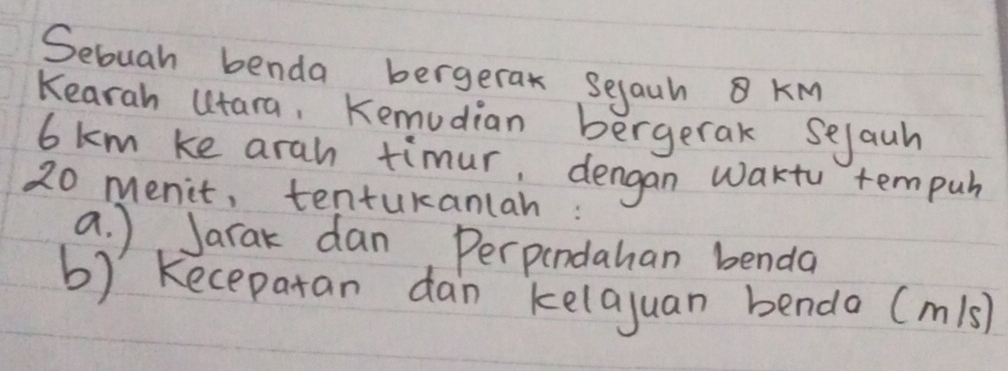 Sebuah benda bergerak sejauh 8 KM
Kearah Utara, Kemudian bergerak sejauh
6 km ke arah timur, dengan waktu tempuh
20 menit, tentukanlah :
a.) Jarak dan Perpindahan benda
b) Kecepatan dan kelajuan benda (m/s)